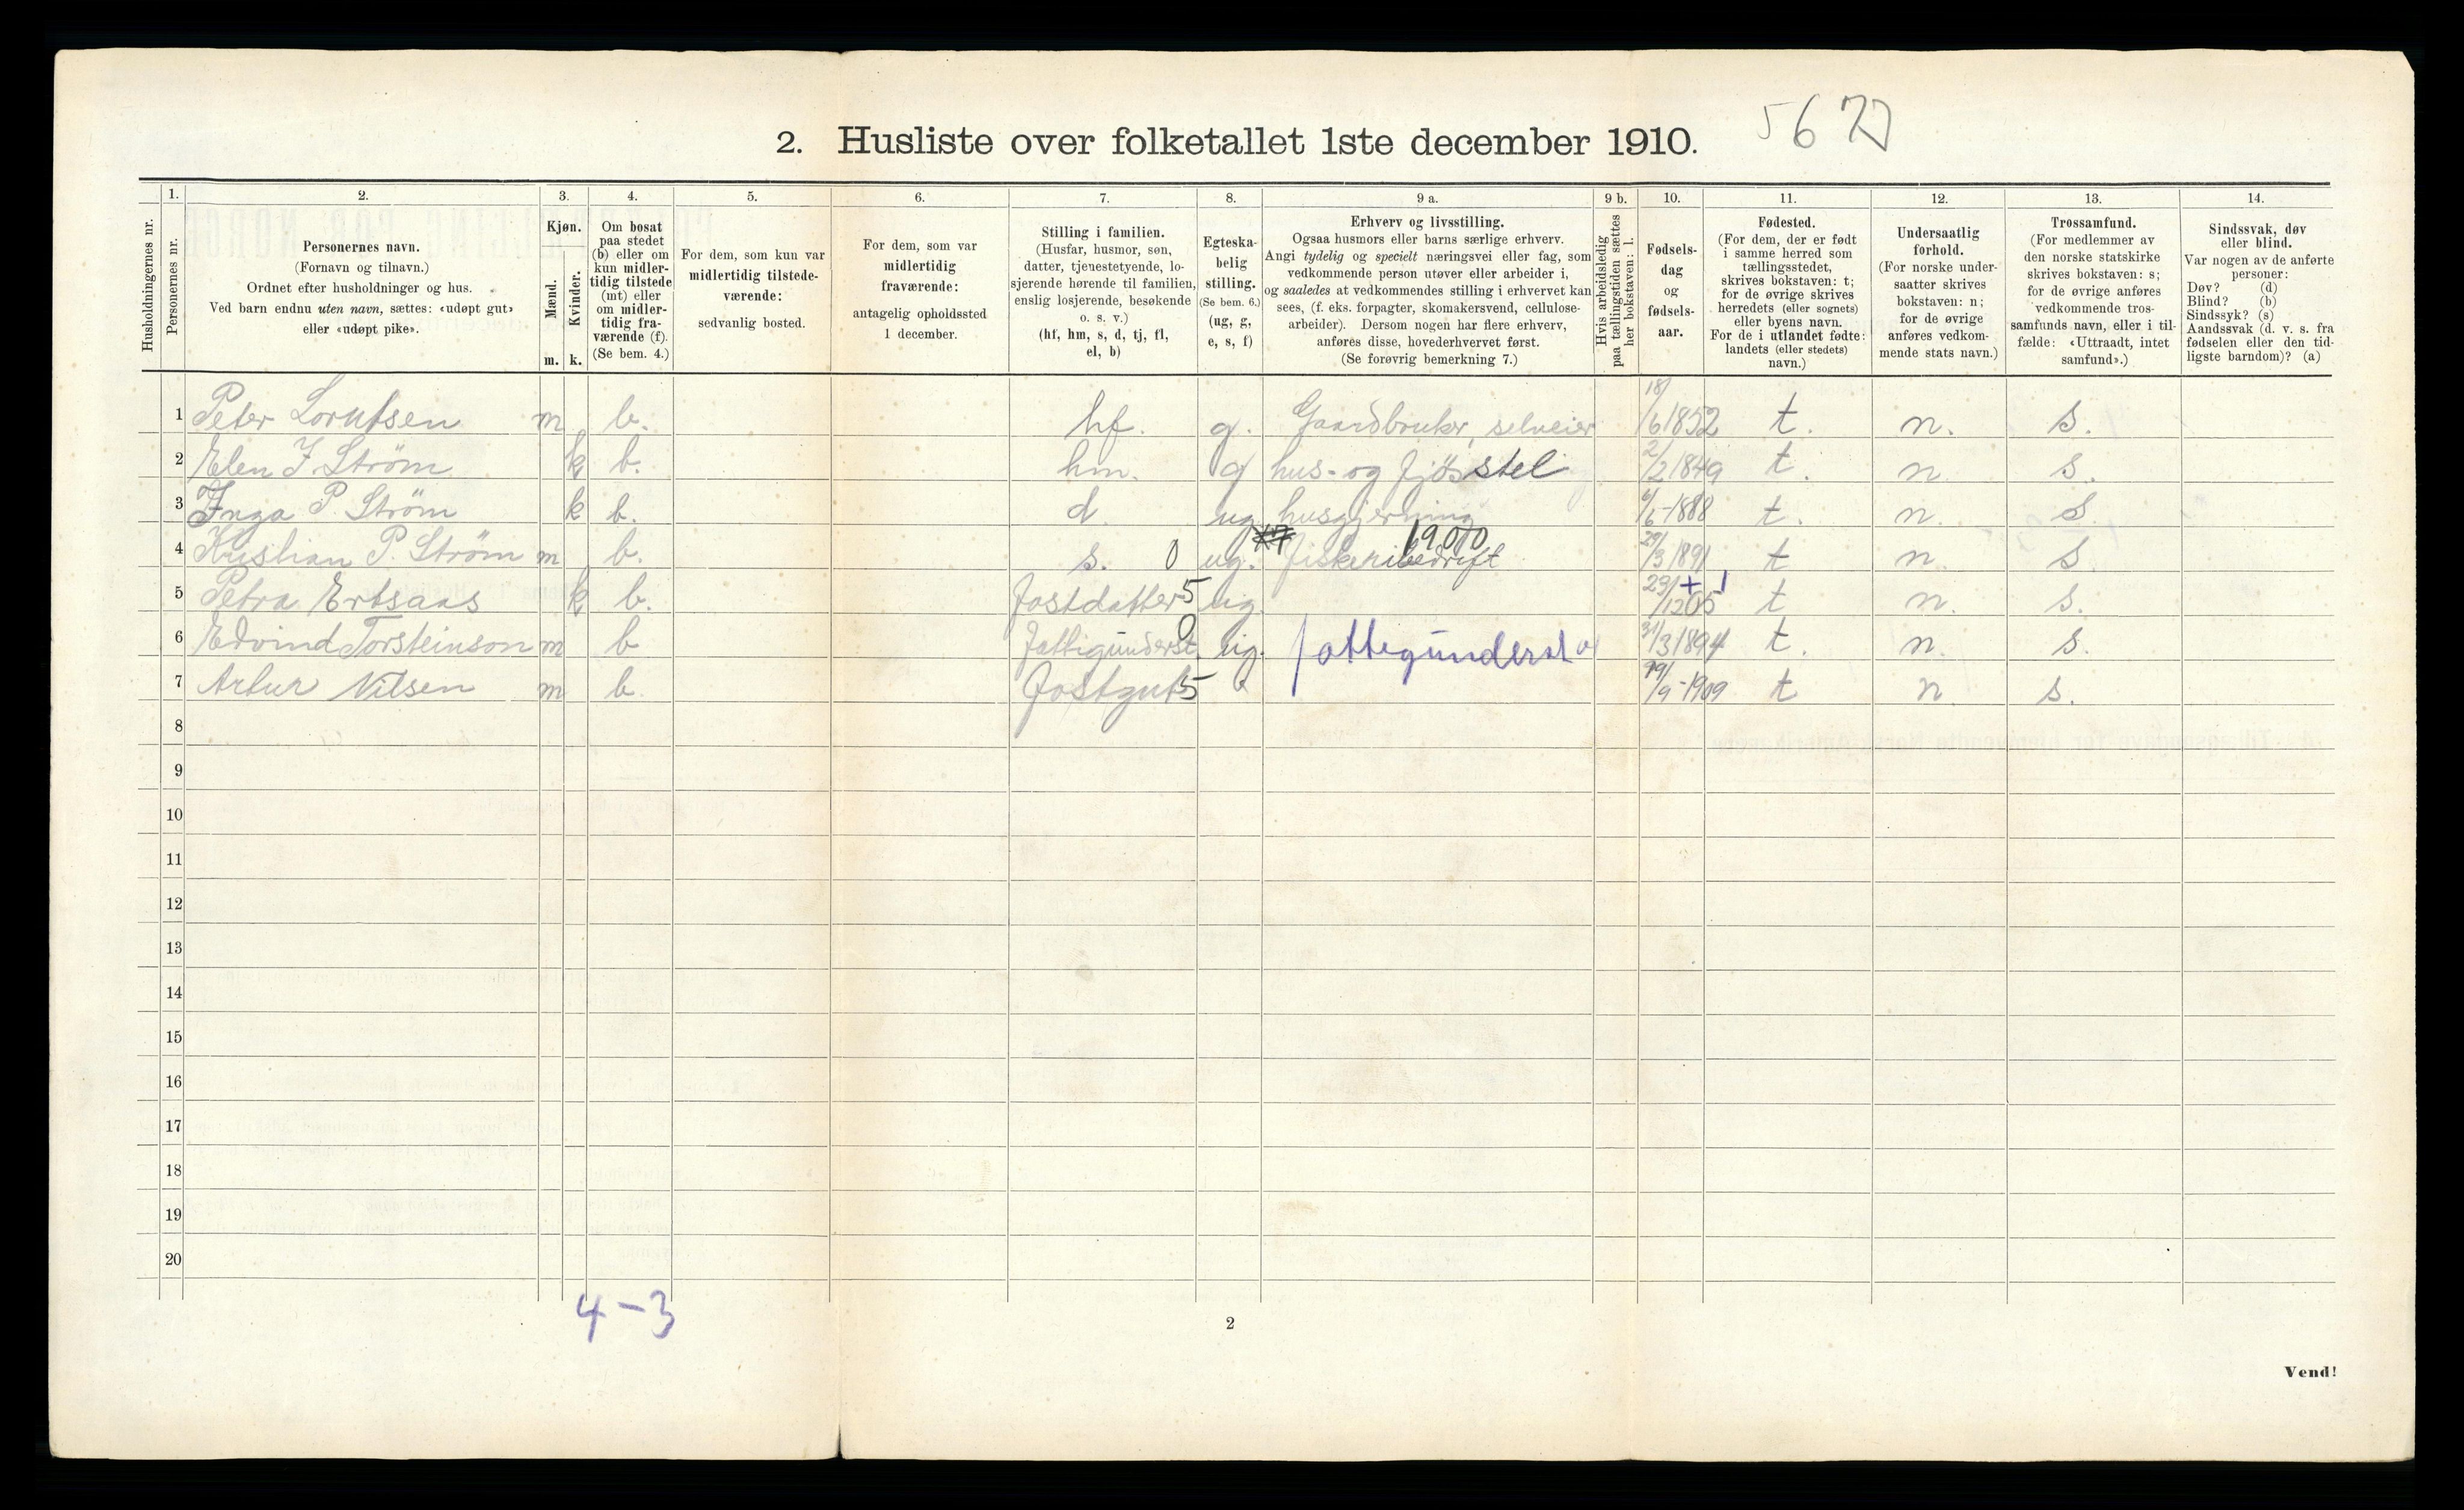 2. Husliste over folketallet 1ste december 1910.
567
Husholdningernes nr.
1.
Personernes nr.
2.
Personernes navn.
(Fornavn og tilnavn.)
Ordnet efter husholdninger og hus.
Ved barn endnu uten navn, sættes: «udøpt gut»
eller «udøpt pike».
3.
Kjøn.
Mænd.
m.
Kvinder.
k.
4.
Om bosat
paa stedet
(b) eller om
kun midler-
tidig tilstede
(mt) eller
om midler-
tidig fra-
værende (f).
(Se bem. 4.)
5.
For dem, som kun var
midlertidig tilstede-
værende:
sedvanlig bosted.
6.
For dem, som var
midlertidig
fraværende:
antagelig opholdssted
1 december.
7.
Stilling i familien.
(Husfar, husmor, søn,
datter, tjenestetyende, lo-
sjerende hørende til familien,
enslig losjerende, besøkende
o. s. v.)
(hf, hm, s, d, tj, fl,
el, b)
8.
Egteska-
belig
stilling.
(Se bem. 6.)
(ug, g,
e, s, f)
9 a.
Erhverv og livsstilling.
Ogsaa husmors eller barns særlige erhverv.
Angi tydelig og specielt næringsvei eller fag, som
vedkommende person utøver eller arbeider i,
og saaledes at vedkommendes stilling i erhvervet kan
sees, (f. eks. forpagter, skomakersvend, cellulose-
arbeider). Dersom nogen har flere erhverv,
anføres disse, hovederhvervet først.
(Se forøvrig bemerkning 7.)
9 b.
Hvis arbeidsledig
paa tællingstiden sættes
her bokstaven: l.
10.
Fødsels-
dag
og
fødsels-
aar.
11.
Fødested.
(For dem, der er født
i samme herred som
tællingsstedet,
skrives bokstaven: t;
for de øvrige skrives
herredets (eller sognets)
eller byens navn.
For de i utlandet fødte:
landets (eller stedets)
navn.)
12.
Undersaatlig
forhold.
(For norske under-
saatter skrives
bokstaven: n;
for de øvrige
anføres vedkom-
mende stats navn.)
13.
Trossamfund.
(For medlemmer av
den norske statskirke
skrives bokstaven: s;
for de øvrige anføres
vedkommende tros-
samfunds navn, eller i til-
fælde: «Uttraadt, intet
samfund».)
14.
Sindssvak, døv
eller blind.
Var nogen av de anførte
personer:
Døv? (d)
Blind? (b)
Sindssyk? (s)
Aandssvak (d. v. s. fra
fødselen eller den tid-
ligste barndom)? (a)
1 Peter Lorntsen m b. hf. g. Gaardbruker, selveier 18/6 1852 t. n. s.
2 Elen J. Ström k b. hm. g hus- og fjösstel 2/2 1849 t. n s.
3 Inga P. Ström k b. d. ug husgjerning 6/6-1888 t. n. s.
19.000
4 Kristian P. Ström m b. s. 0 ug. fiskeribedrift 29/3 1891 t n. s
5 Petra Ertsaas k b. fostdatter 5 ug. 29/12 05 + 1 t n. s.
6 Edvind Torsteinson m b fattigunderst. 0 ug. fattigunderst 31/3 1894 t. n. s.
7 Artur Nilsen m b. fostgut 5 19/9-1909 t n s.
8
9
10
11
12
13
14
15
16
17
18
19
20
4-3
2
Vend!